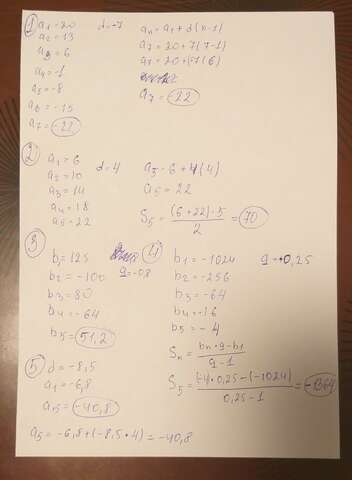 1
a1=20 d=-7
a2=13
a3=6
a4=-1
a5=-8
a6=-15
a7=-22
an=a1+d(n-1)
a7=20+7(7-1)
a7=20+(-7(6)
a7=-22
2
a1=6 d=4
a2=10
a3=14
a4=18
a5=22
a5=6+4(4)
a5=22
S5=(6+22)·5/2=70
3
b1=125 q=-0,8
b2=-100
b3=80
b4=-64
b5=51,2
4
b1=-1024 q=0,25
b2=-256
b3=-64
b4=-16
b5=-4
Sn=bn·q-b1/q-1
S5=(-4)·0,25-(-1024)/0,25-1=-1364
5
d=-8,5
a1=-6,8
a5=-40,8
a5=-6,8+(-8,5·4)=-40,8